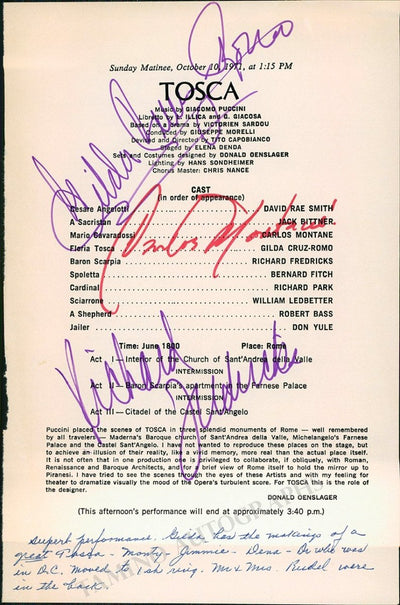 Sunday Matinee, October 10, 1971, at 1:15 PM
TOSCA
Music by GIACOMO PUCCINI
Libretto by L. ILLICA and G. GIACOSA
Based on a drama by VICTORIEN SARDOU
Conducted by GIUSEPPE MORELLI
Devised and Directed by TITO CAPOBIANCO
Staged by ELENA DENDA
Sets and Costumes designed by DONALD OENSLAGER
Lighting by HANS SONDHEIMER
Chorus Master: CHRIS NANCE
Gilda Cruz-Romo
CAST
(in order of appearance)
Cesare Angelotti DAVID RAE SMITH
A Sacristan JACK BITTNER
Mario Cavaradossi CARLOS MONTANE
Floria Tosca GILDA CRUZ-ROMO
Baron Scarpia RICHARD FREDRICKS
Spoletta BERNARD FITCH
Cardinal RICHARD PARK
Sciarrone WILLIAM LEDBETTER
A Shepherd ROBERT BASS
Jailer DON YULE
Carlos Montane
Time: June 1800 Place: Rome
Act I—Interior of the Church of Sant'Andrea della Valle
INTERMISSION
Act II—Baron Scarpia's apartment in the Farnese Palace
INTERMISSION
Act III—Citadel of the Castel Sant'Angelo
Richard Fredricks
Puccini placed the scenes of TOSCA in three splendid monuments of Rome — well remembered
by all travelers — Maderna's Baroque church of Sant'Andrea della Valle, Michelangelo's Farnese
Palace and the Castel Sant'Angelo. I have not wanted to reproduce these places on the stage, but
to achieve an illusion of their reality, like a vivid memory, more real than the actual place itself.
It is not often that in one production one is privileged to collaborate, if obliquely, with Roman,
Renaissance and Baroque Architects, and for a brief view of Rome itself to hold the mirror up to
Piranesi. I have tried to see the scenes through the eyes of these Artists and with my feeling for
theater to dramatize visually the mood of the Opera's turbulent score. For TOSCA this is the role of
the designer.
DONALD OENSLAGER
(This afternoon's performance will end at approximately 3:40 p.m.)
Superb performance. Gilda has the makings of a
great Tosca - Monty - Jimmie - Dena - Dr who was
in D.C. moved to 1st ring. Mr & Mrs. Rudel were
in the back.
TAMINO AUTOGRAPHS